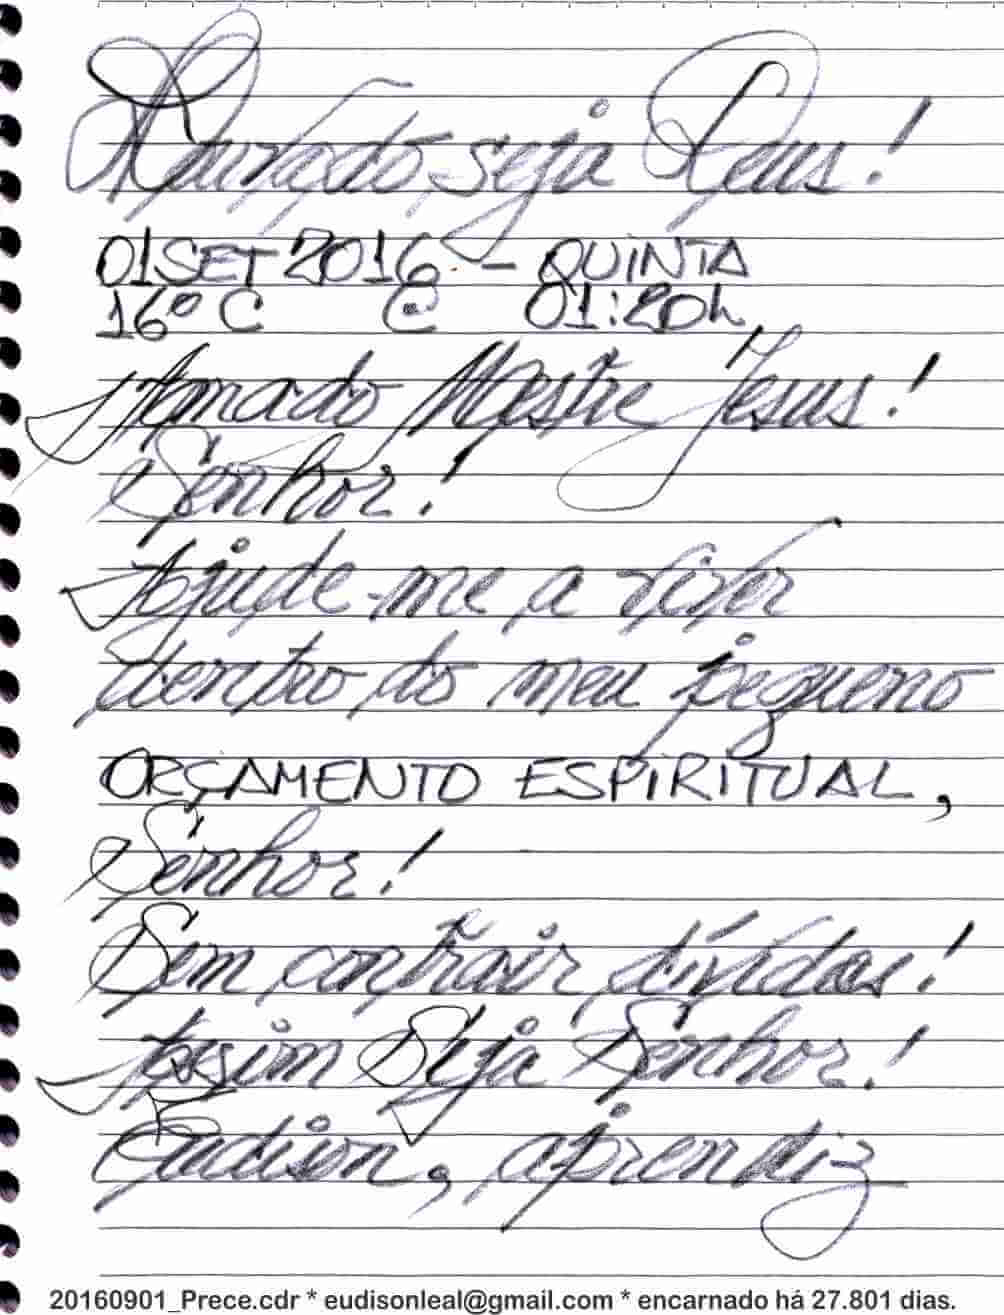 Louvado seja Deus!
01 SET 2016 - QUINTA
16º C C 01:20h
Amado Mestre Jesus!
Senhor!
Ajude-me a viver
dentro do meu pequeno
ORÇAMENTO ESPIRITUAL,
Senhor!
Sem contrair dívidas!
Assim Seja Senhor!
Eudison, aprendiz
20160901_Prece.cdr * eudisonleal@gmail.com * encarnado há 27.801 dias.